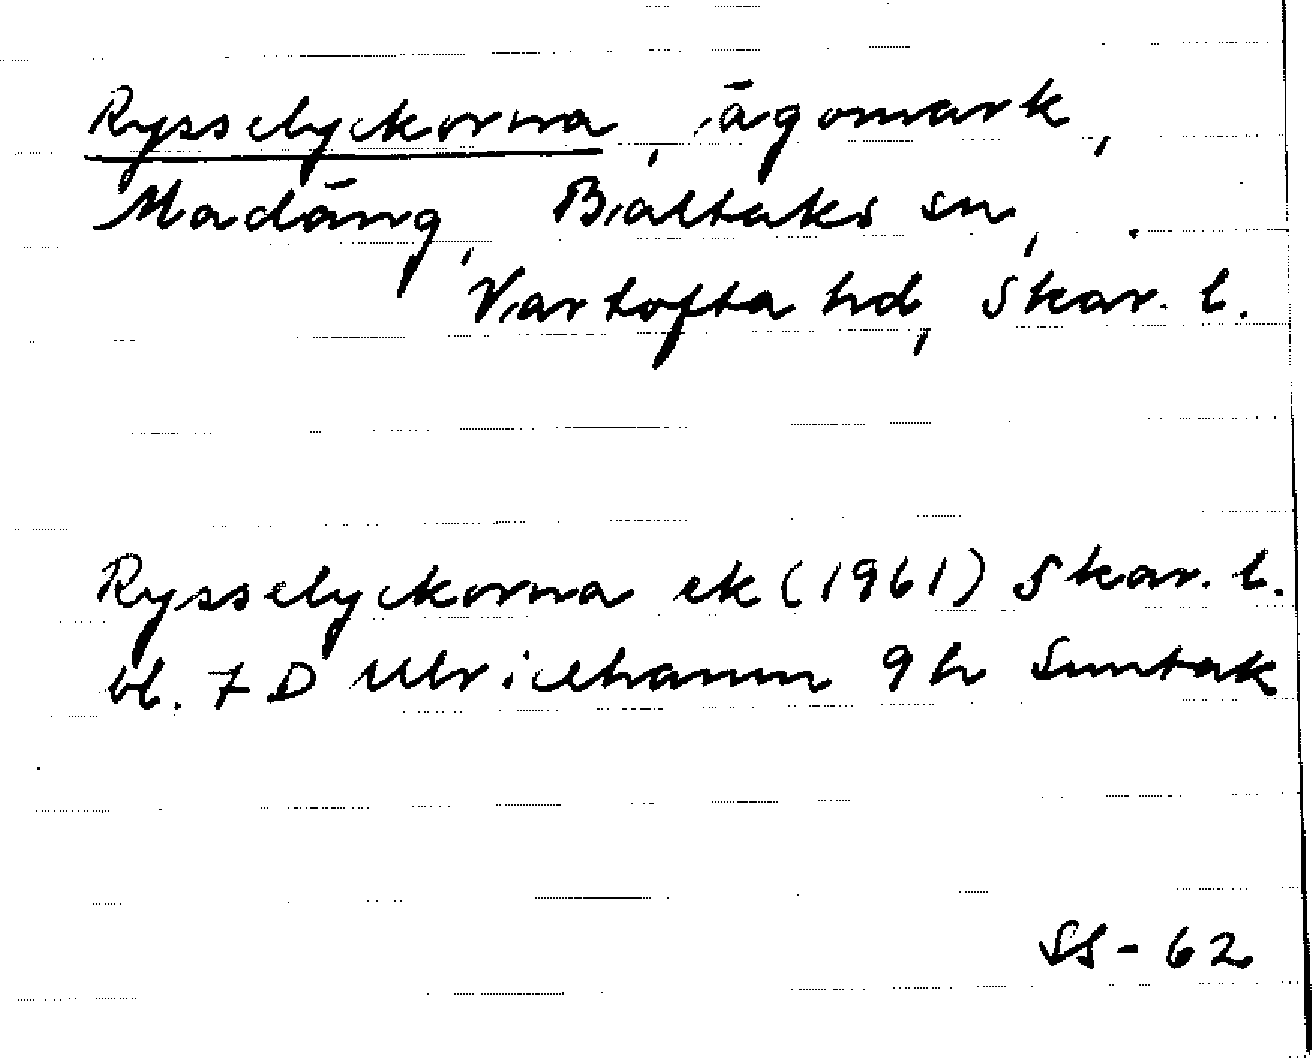 Rysselyckorna, ägomark,
Madäng, Baltaks sn,
Vartofta hd, Skar. l.
Rysselyckorna ek (1961) Skar. l.
bl. 7 D Ulricehamn 9 h Suntak
SS - 62